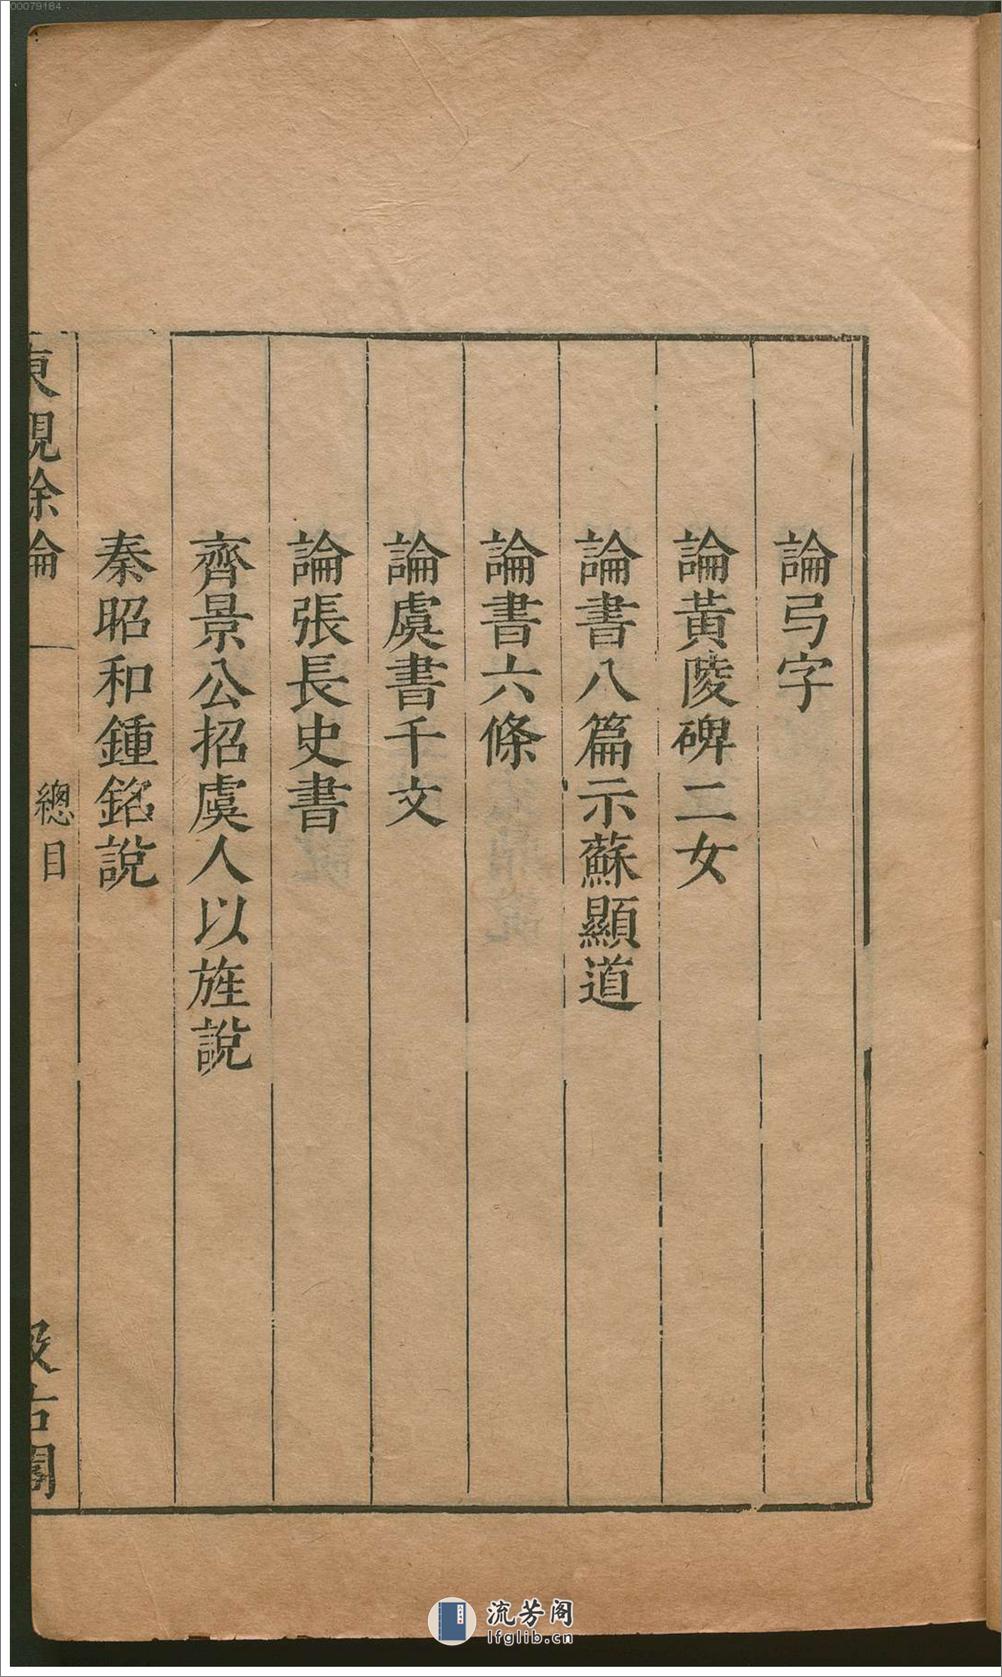 論弓字
論黃陵碑二女
論書八篇示蘇顯道
論書六條
論虞書千文
論張長史書
齊景公招虞人以旌說
秦昭和鍾銘說
東觀餘論
總目
汲古閣
00079184
流芳阁
lfglib.cn